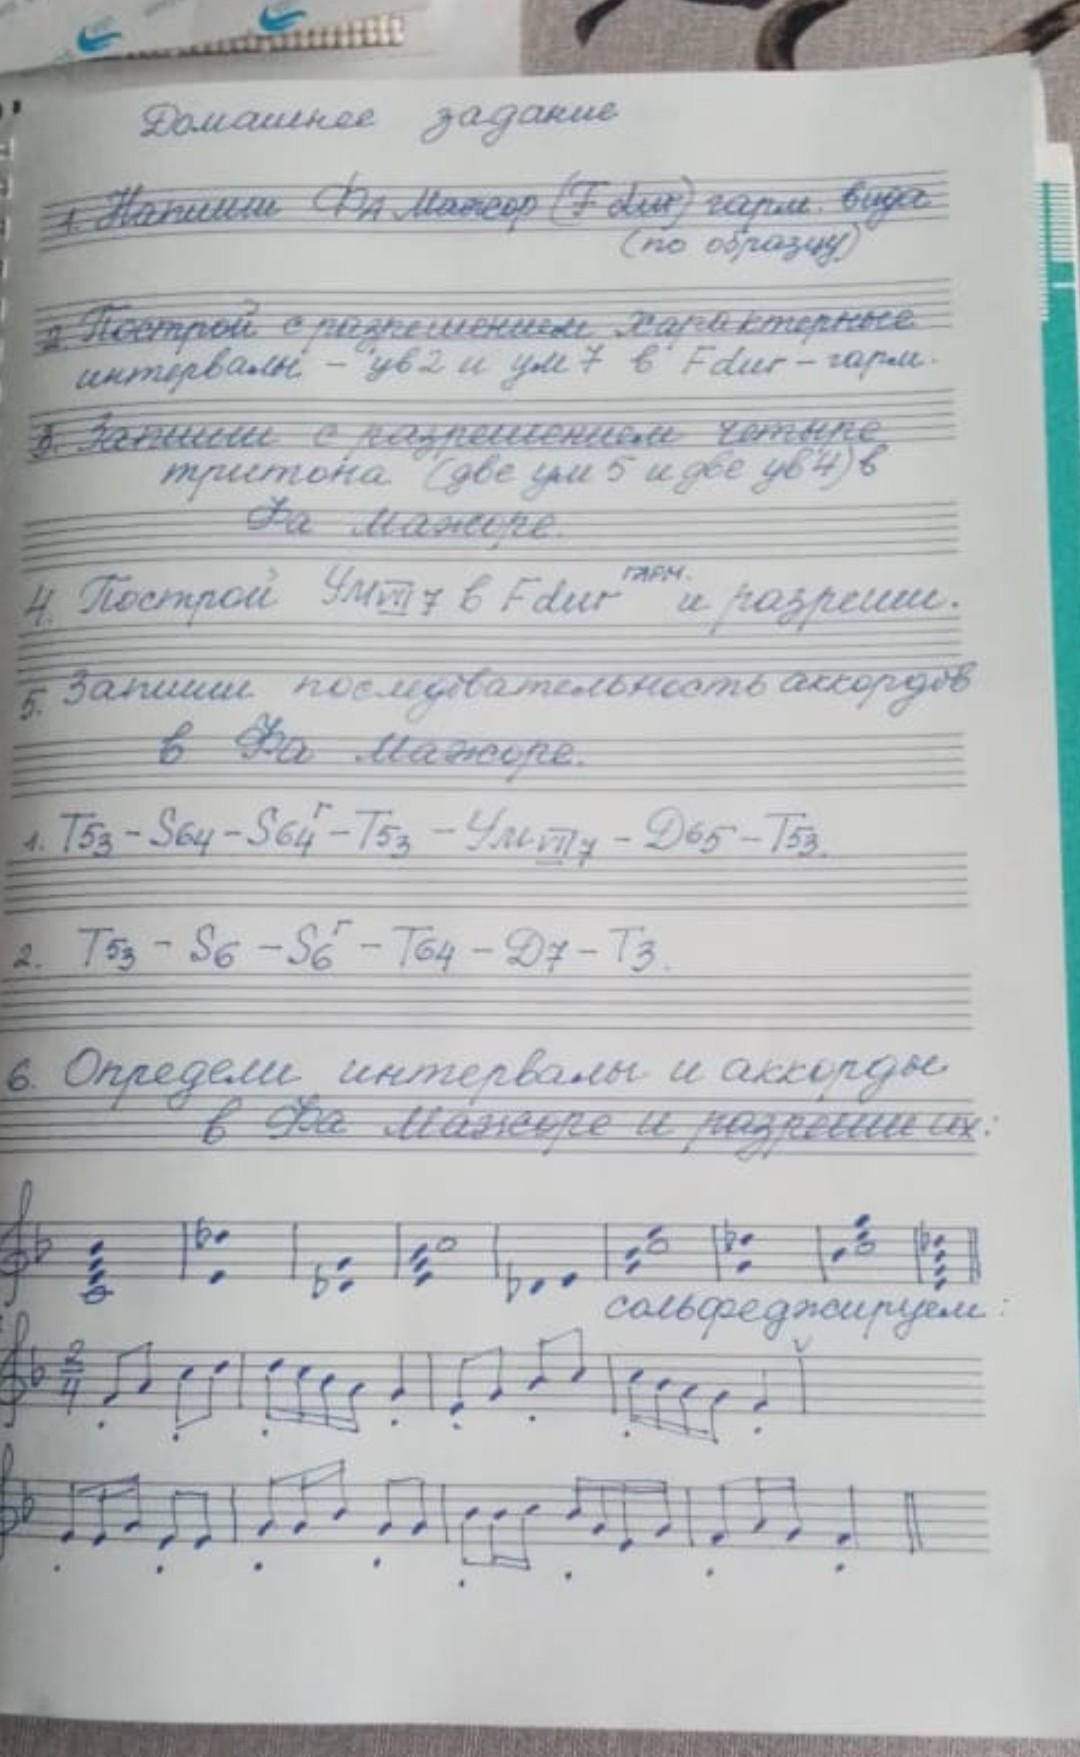 Домашнее задание
1. Напиши Фа Мажор (F dur) гарм. вида
(по образцу)
2. Построй с разрешением характерные
интервалы - ув2 и ум7 в F dur - гарм.
3. Запиши с разрешением четыре
тритона (две ум5 и две ув4) в
Фа Мажоре.
4. Построй УмVII7 в F dur гарм. и разреши.
5. Запиши последовательность аккордов
в Фа Мажоре.
1. T53 - S64 - S64г - T53 - УмVII7 - D65 - T53.
2. T53 - S6 - S6г - T64 - D7 - T3.
6. Определи интервалы и аккорды
в Фа Мажоре и разреши их:
сольфеджируем:
2/4